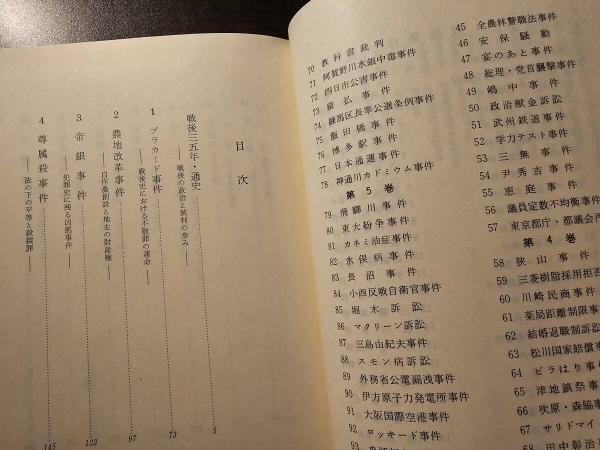 目次
戦後三五年・通史
――戦後の政治と裁判の歩み―― 3
1 プラカード事件
――戦後史における不敬罪の運命―― 73
2 農地改革事件
――自作農創設と地主の財産権―― 97
3 帝銀事件
――犯罪史に残る凶悪事件―― 123
4 尊属殺事件
――法の下の平等と殺親罪―― 145
45 全農林警職法事件
46 安保騒動
47 宴のあと事件
48 総理・党首襲撃事件
49 嶋中事件
50 政治献金訴訟
51 武州鉄道事件
52 学力テスト事件
53 三無事件
54 尹秀吉事件
55 恵庭事件
56 議員定数不均衡事件
57 東京都庁・都議会汚
第4巻
58 狭山事件
59 三菱樹脂採用拒否
60 川崎民商事件
61 薬局距離制限事
62 結婚退職制訴訟
63 松川国家賠償事
64 ビラはり事件
65 津地鎮祭事
66 吹原・森脇事
67 サリドマイ
68 田中彰治
70 教科書裁判
71 阿賀野川水銀中毒事件
72 四日市公害事件
73 猿払事件
74 練馬区長準公選条例事件
75 飯田橋事件
76 博多駅事件
77 日本通運事件
78 神通川カドミウム事件
第5巻
79 飛騨川事件
80 東大紛争事件
81 カネミ油症事件
82 水俣病事件
83 長沼事件
84 小西反戦自衛官事件
85 堀木訴訟
86 マクリーン訴訟
87 三島由紀夫事件
88 スモン病訴訟
89 外務省公電漏洩事件
90 伊方原子力発電所事件
91 大阪国際空港事件
92 ロッキード事件
93